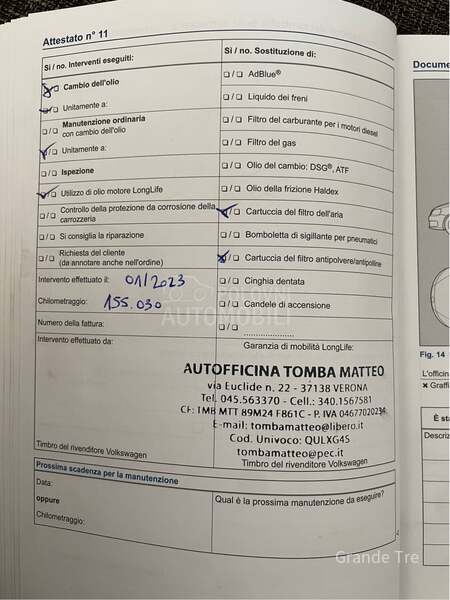 Attestato n° 11
Si / no. Interventi eseguiti:
❑/❑ Cambio dell'olio
❑/❑ Unitamente a:
❑/❑ Manutenzione ordinaria
con cambio dell'olio
❑/❑ Unitamente a:
❑/❑ Ispezione
❑/❑ Utilizzo di olio motore LongLife
❑/❑ Controllo della protezione da corrosione della
carrozzeria
❑/❑ Si consiglia la riparazione
❑/❑ Richiesta del cliente
(da annotare anche nell'ordine)
Intervento effettuato il: 01/2023
Chilometraggio: 155.030
Numero della fattura:
Intervento effettuato da:
Timbro del rivenditore Volkswagen
Si / no. Sostituzione di:
❑/❑ AdBlue®
❑/❑ Liquido dei freni
❑/❑ Filtro del carburante per i motori diesel
❑/❑ Filtro del gas
❑/❑ Olio del cambio: DSG®, ATF
❑/❑ Olio della frizione Haldex
❑/❑ Cartuccia del filtro dell'aria
❑/❑ Bomboletta di sigillante per pneumatici
❑/❑ Cartuccia del filtro antipolvere/antipolline
❑/❑ Cinghia dentata
❑/❑ Candele di accensione
❑/❑ ....................
Garanzia di mobilità LongLife:
AUTOFFICINA TOMBA MATTEO
via Euclide n. 22 - 37138 VERONA
Tel. 045.563370 - Cell.: 340.1567581
CF: TMB MTT 89M24 F861C - P. IVA 04677020234
E-mail: tombamatteo@libero.it
Cod. Univoco: QULXG4S
tombamatteo@pec.it
Timbro del rivenditore Volkswagen
Prossima scadenza per la manutenzione
Data:
oppure
Chilometraggio:
Qual è la prossima manutenzione da eseguire?
AUTOMOBILI
Docume
Fig. 14
L'officin
✖ Graffi
È sta
Descriz
Grande Tre